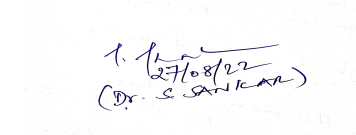 27/08/22
(Dr. S SANKAR)